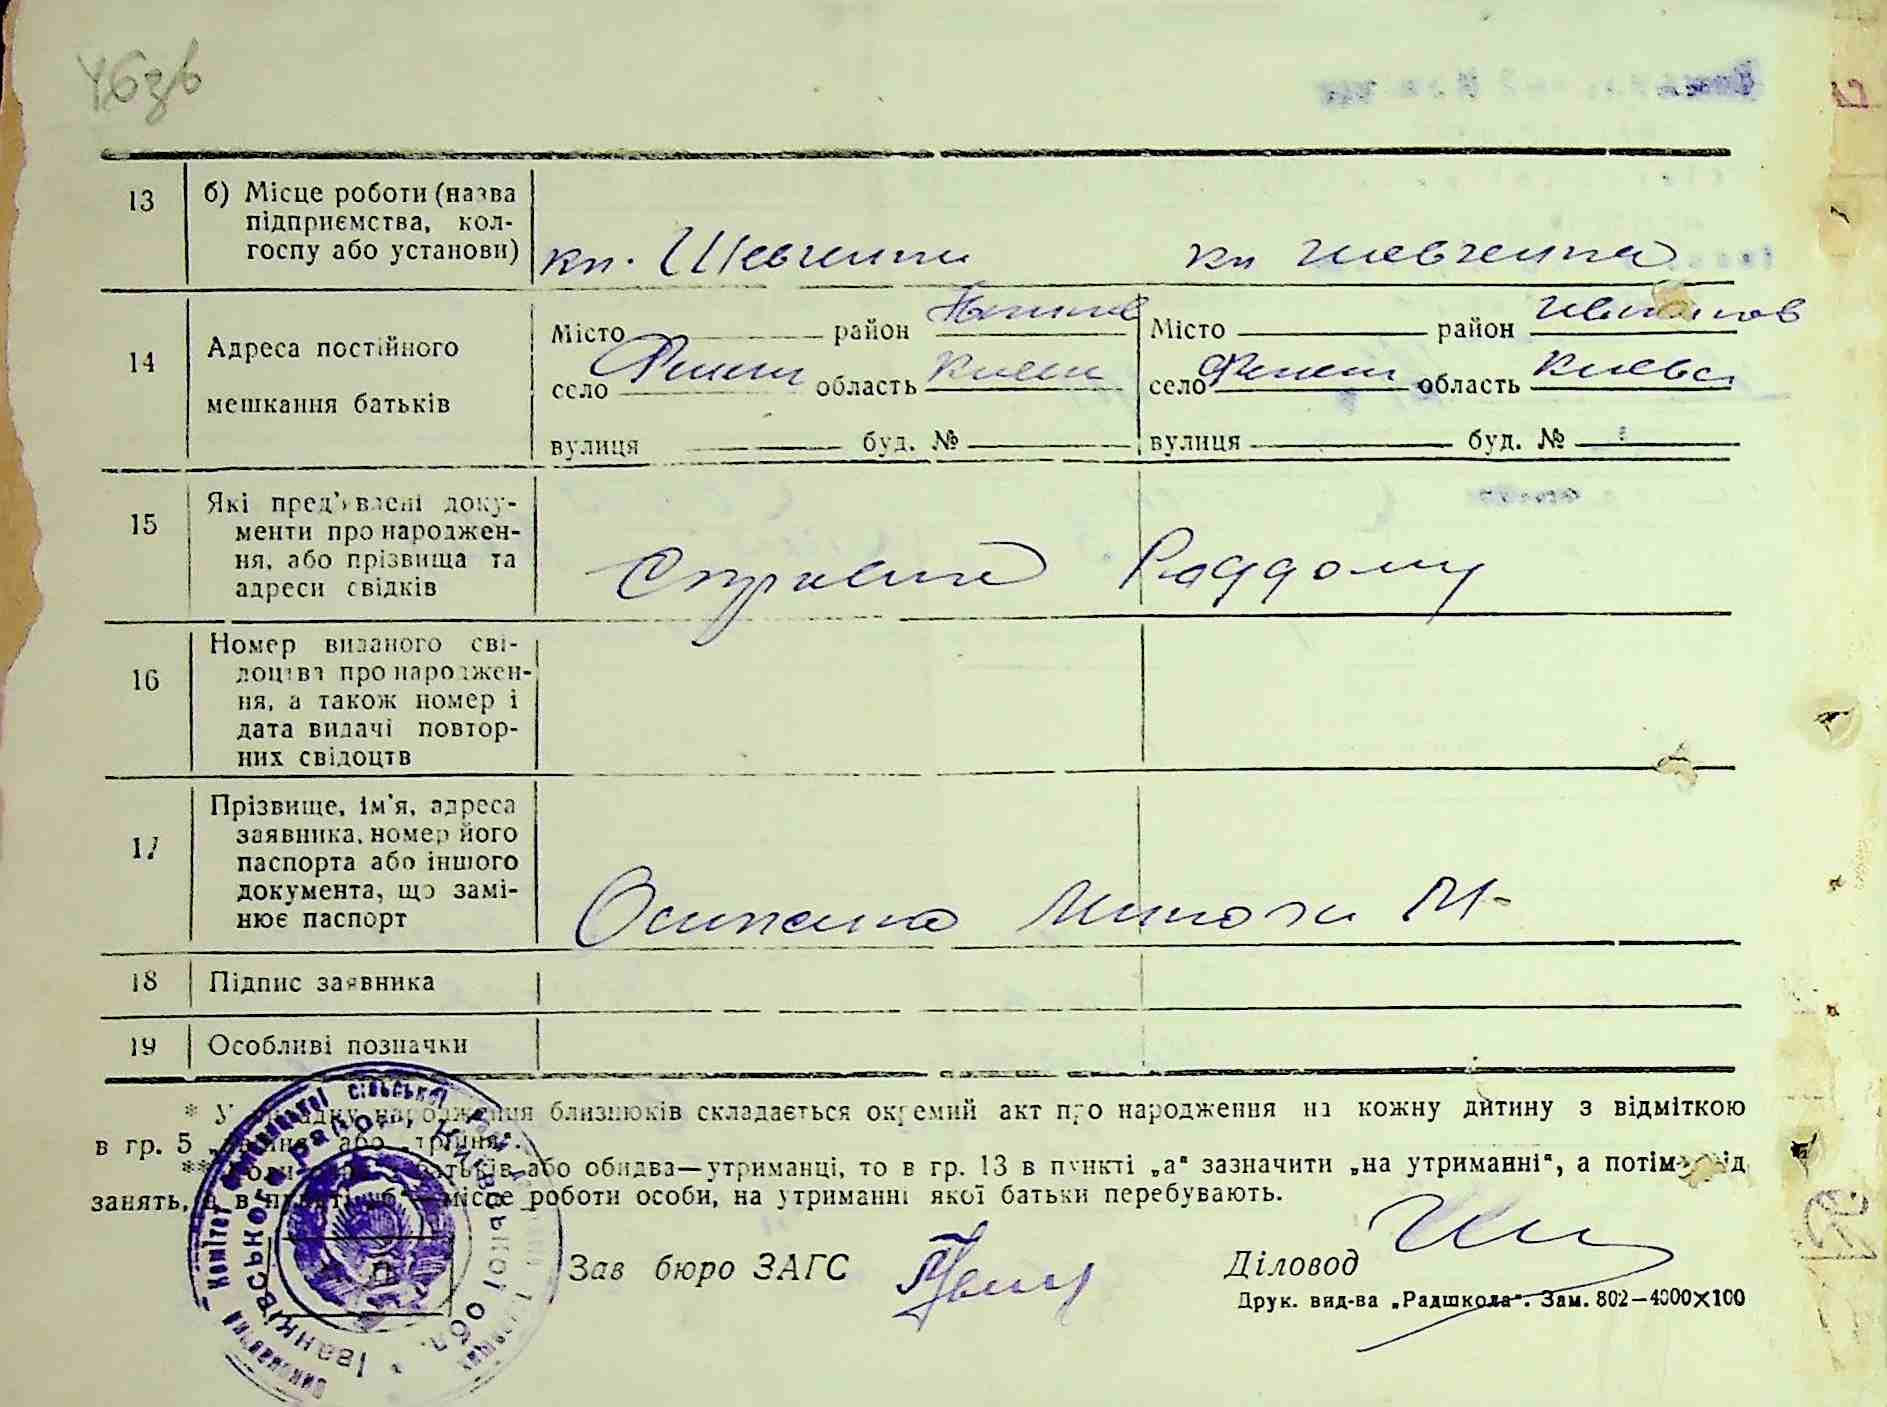 463в
13 б) Місце роботи (назва підприємства, колгоспу або установи) кп. Шевченка кп Шевченка
14 Адреса постійного мешкання батьків
Місто район Місто район Іванков
село область Києвс село область Києвс
вулиця буд. № вулиця буд. №
15 Які пред'явлені документи про народження, або прізвища та адреси свідків Справка Раддому
16 Номер виданого свідоцтва про народження, а також номер і дата видачі повторних свідоцтв
17 Прізвище, ім'я, адреса заявника, номер його паспорта або іншого документа, що замінює паспорт М.
18 Підпис заявника
19 Особливі позначки
* У випадку народження близнюків складається окремий акт про народження на кожну дитину з відміткою
в гр. 5 „двійня" або „трійня".
** Коли батьків або обидва—утриманці, то в гр. 13 в пункті „а" зазначити „на утриманні", а потім рід
занять, а в пункті „б"—місце роботи особи, на утриманні якої батьки перебувають.
Зав бюро ЗАГС Діловод
Друк. вид-ва „Радшкола". Зам. 802—4000×100
Виконавчий Комітет сільської ради
Іванківського району Київської обл.